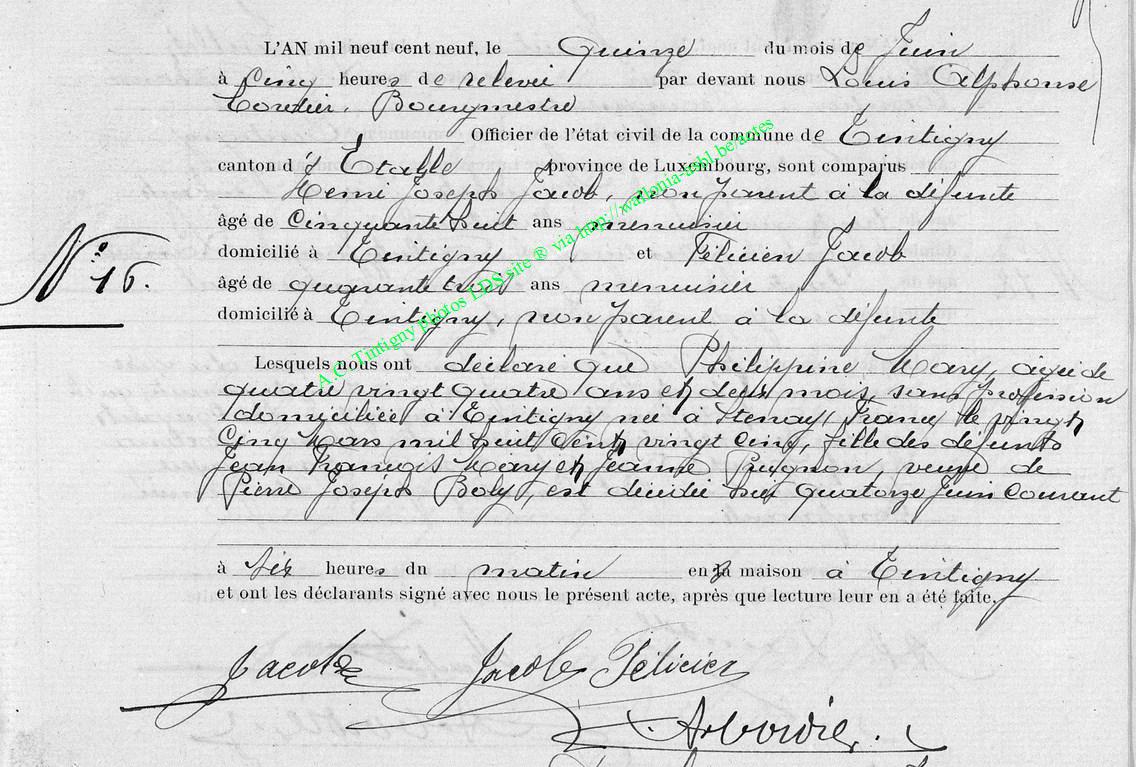 L'AN mil neuf cent neuf, le Quinze du mois de Juin
à Cinq heures de relevée par devant nous Louis Alphonse
Cordier, Bourgmestre
Officier de l'état civil de la commune de Tintigny
canton d'Etalle province de Luxembourg, sont comparus
Henri Joseph Jacob, non parent à la défunte
âgé de Cinquante huit ans menuisier
domicilié à Tintigny et Félicien Jacob
N° 16.
âgé de quarante trois ans menuisier
domicilié à Tintigny, non parent à la défunte
Lesquels nous ont déclaré que Philippine Mary, agée de
quatre vingt quatre ans et deux mois, sans profession
domiciliée à Tintigny née à Stenay, France le vingt
Cinq Mars mil huit Cent vingt Cinq, fille des défunts
Jean François Mary et Jeanne Pugnon, veuve de
Pierre Joseph Boly, est décédée hier quatorze Juin Courant
à six heures du matin en sa maison à Tintigny
et ont les déclarants signé avec nous le présent acte, après que lecture leur en a été faite.
Jacob Jacob Félicien
A. Cordier.
A.C. Tintigny photos LDS site ® via http://wallonia-asbl.be/actes